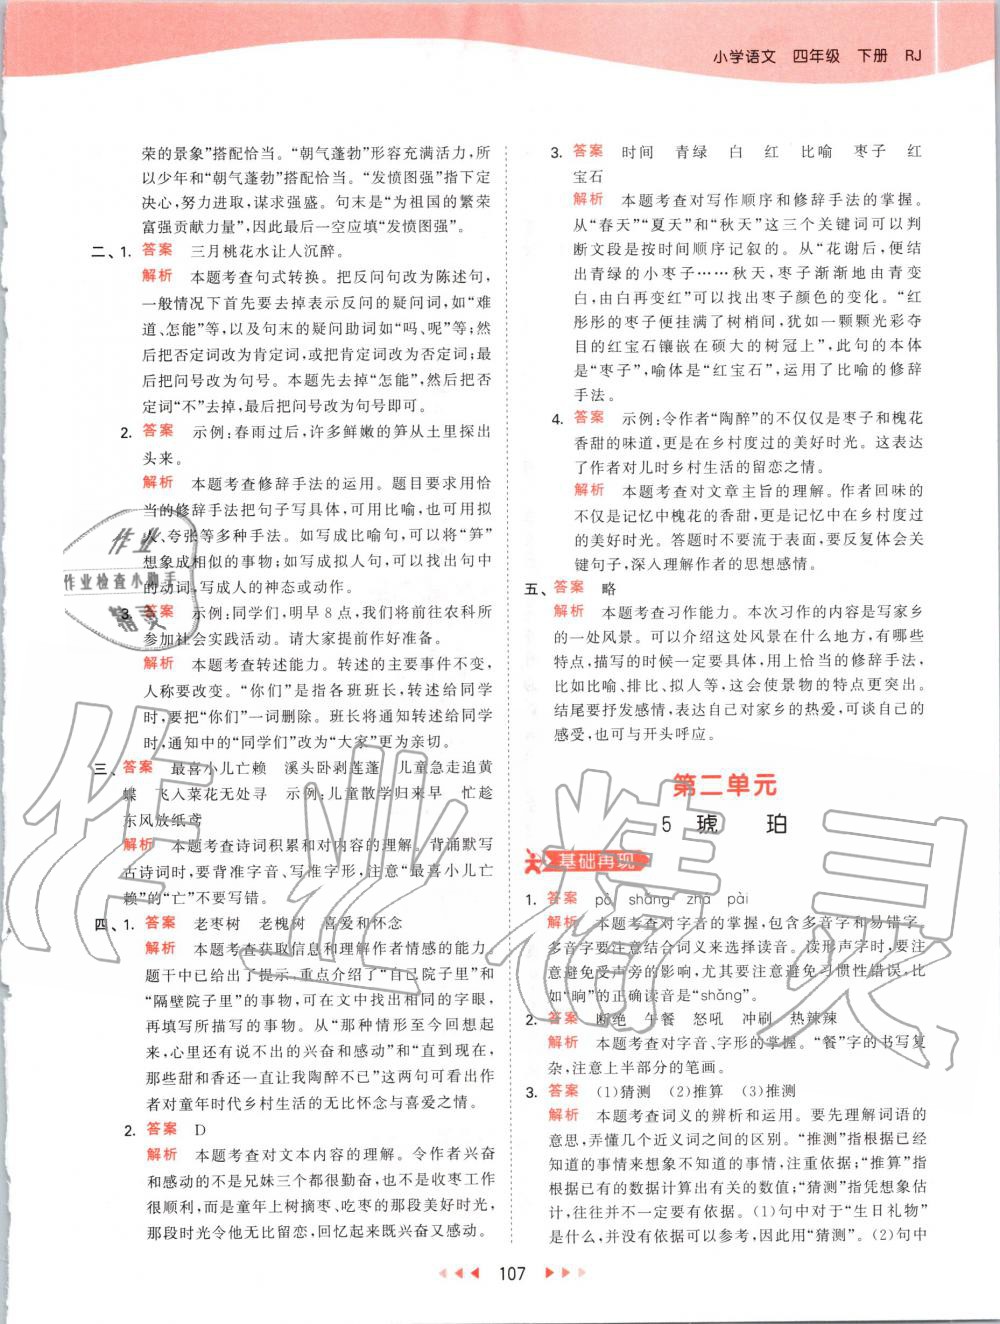 小学语文 四年级 下册 RJ
荣的景象”搭配恰当。“朝气蓬勃”形容充满活力,所
以少年和“朝气蓬勃”搭配恰当。“发愤图强”指下定
决心,努力进取,谋求强盛。句末是“为祖国的繁荣
富强贡献力量”,因此最后一空应填“发愤图强”。
二、1. 答案 三月桃花水让人沉醉。
解析 本题考查句式转换。把反问句改为陈述句,
一般情况下首先要去掉表示反问的疑问词,如“难
道、怎能”等,以及句末的疑问助词如“吗、呢”等;然
后把否定词改为肯定词,或把肯定词改为否定词;最
后把问号改为句号。本题先去掉“怎能”,然后把否
定词“不”去掉,最后把问号改为句号即可。
2. 答案 示例:春雨过后,许多鲜嫩的笋从土里探出
头来。
解析 本题考查修辞手法的运用。题目要求用恰
当的修辞手法把句子写具体,可用比喻,也可用拟
人、夸张等多种手法。如写成比喻句,可以将“笋”
想象成相似的事物;如写成拟人句,可以找出句中
的动词,写成人的神态或动作。
3. 答案 示例:同学们,明早8点,我们将前往农科所
参加社会实践活动。请大家提前作好准备。
解析 本题考查转述能力。转述的主要事件不变,
人称要改变。“你们”是指各班班长,转述给同学
时,要把“你们”一词删除。班长将通知转述给同学
时,通知中的“同学们”改为“大家”更为亲切。
三、答案 最喜小儿亡赖 溪头卧剥莲蓬 儿童急走追黄
蝶 飞入菜花无处寻 示例:儿童散学归来早 忙趁
东风放纸鸢
解析 本题考查诗词积累和对内容的理解。背诵默写
古诗词时,要背准字音、写准字形,注意“最喜小儿亡
赖”的“亡”不要写错。
四、1. 答案 老枣树 老槐树 喜爱和怀念
解析 本题考查获取信息和理解作者情感的能力。
题干中已给出了提示,重点介绍了“自己院子里”和
“隔壁院子里”的事物,可在文中找出相同的字眼,
再填写所描写的事物。从“那种情形至今回想起
来,心里还有说不出的兴奋和感动”和“直到现在,
那些甜和香还一直让我陶醉不已”这两句可看出作
者对童年时代乡村生活的无比怀念与喜爱之情。
2. 答案 D
解析 本题考查对文本内容的理解。令作者兴奋
和感动的不是兄妹三个都很勤奋,也不是收枣工作
很顺利,而是童年在树上摘枣、吃枣的那段美好时光,
那段时光令他无比留恋,回忆起来既兴奋又感动。
3. 答案 时间 青绿 白 红 比喻 枣子 红
宝石
解析 本题考查对写作顺序和修辞手法的掌握。
从“春天”“夏天”和“秋天”这三个关键词可以判
断文段是按时间顺序记叙的。从“花谢后,便结
出青绿的小枣子……秋天,枣子渐渐地由青变
白,由白再变红”可以找出枣子颜色的变化。“红
彤彤的枣子便挂满了树梢间,犹如一颗颗光彩夺
目的红宝石镶嵌在硕大的树冠上”,此句的本体
是“枣子”,喻体是“红宝石”,运用了比喻的修辞
手法。
4. 答案 示例:令作者“陶醉”的不仅仅是枣子和槐花
香甜的味道,更是在乡村度过的美好时光。这表达
了作者对儿时乡村生活的留恋之情。
解析 本题考查对文章主旨的理解。作者回味的
不仅是记忆中槐花的香甜,更是记忆中在乡村度过
的美好时光。答题时不要流于表面,要反复体会关
键句子,深入理解作者的思想感情。
五、答案 略
解析 本题考查习作能力。本次习作的内容是写家乡
的一处风景。可以介绍这处风景在什么地方,有哪些
特点,描写的时候一定要具体,用上恰当的修辞手法,
比如比喻、排比、拟人等,这会使景物的特点更突出。
结尾要抒发感情,表达自己对家乡的热爱,可谈自己的
感受,也可与开头呼应。
第二单元
5 琥 珀
基础再现
1. 答案 pō shǎng zhá pài
解析 本题考查对字音的掌握,包含多音字和易错字。
多音字要注意结合词义来选择读音。读形声字时,要注
意避免受声旁的影响,尤其要注意避免习惯性错误,比
如“晌”的正确读音是“shǎng”。
2. 答案 断绝 午餐 怒吼 冲刷 热辣辣
解析 本题考查对字音、字形的掌握。“餐”字的书写复
杂,注意上半部分的笔画。
3. 答案 (1)猜测 (2)推算 (3)推测
解析 本题考查词义的辨析和运用。要先理解词语的
意思,弄懂几个近义词之间的区别。“推测”指根据已经
知道的事情来想象不知道的事情,注重依据;“推算”指
根据已有的数据计算出有关的数值;“猜测”指凭想象估
计,往往并不一定要有依据。(1)句中对于“生日礼物”
是什么,并没有依据可以参考,因此用“猜测”。(2)句中
107
作业
作业检查小助手
精灵
作业精灵